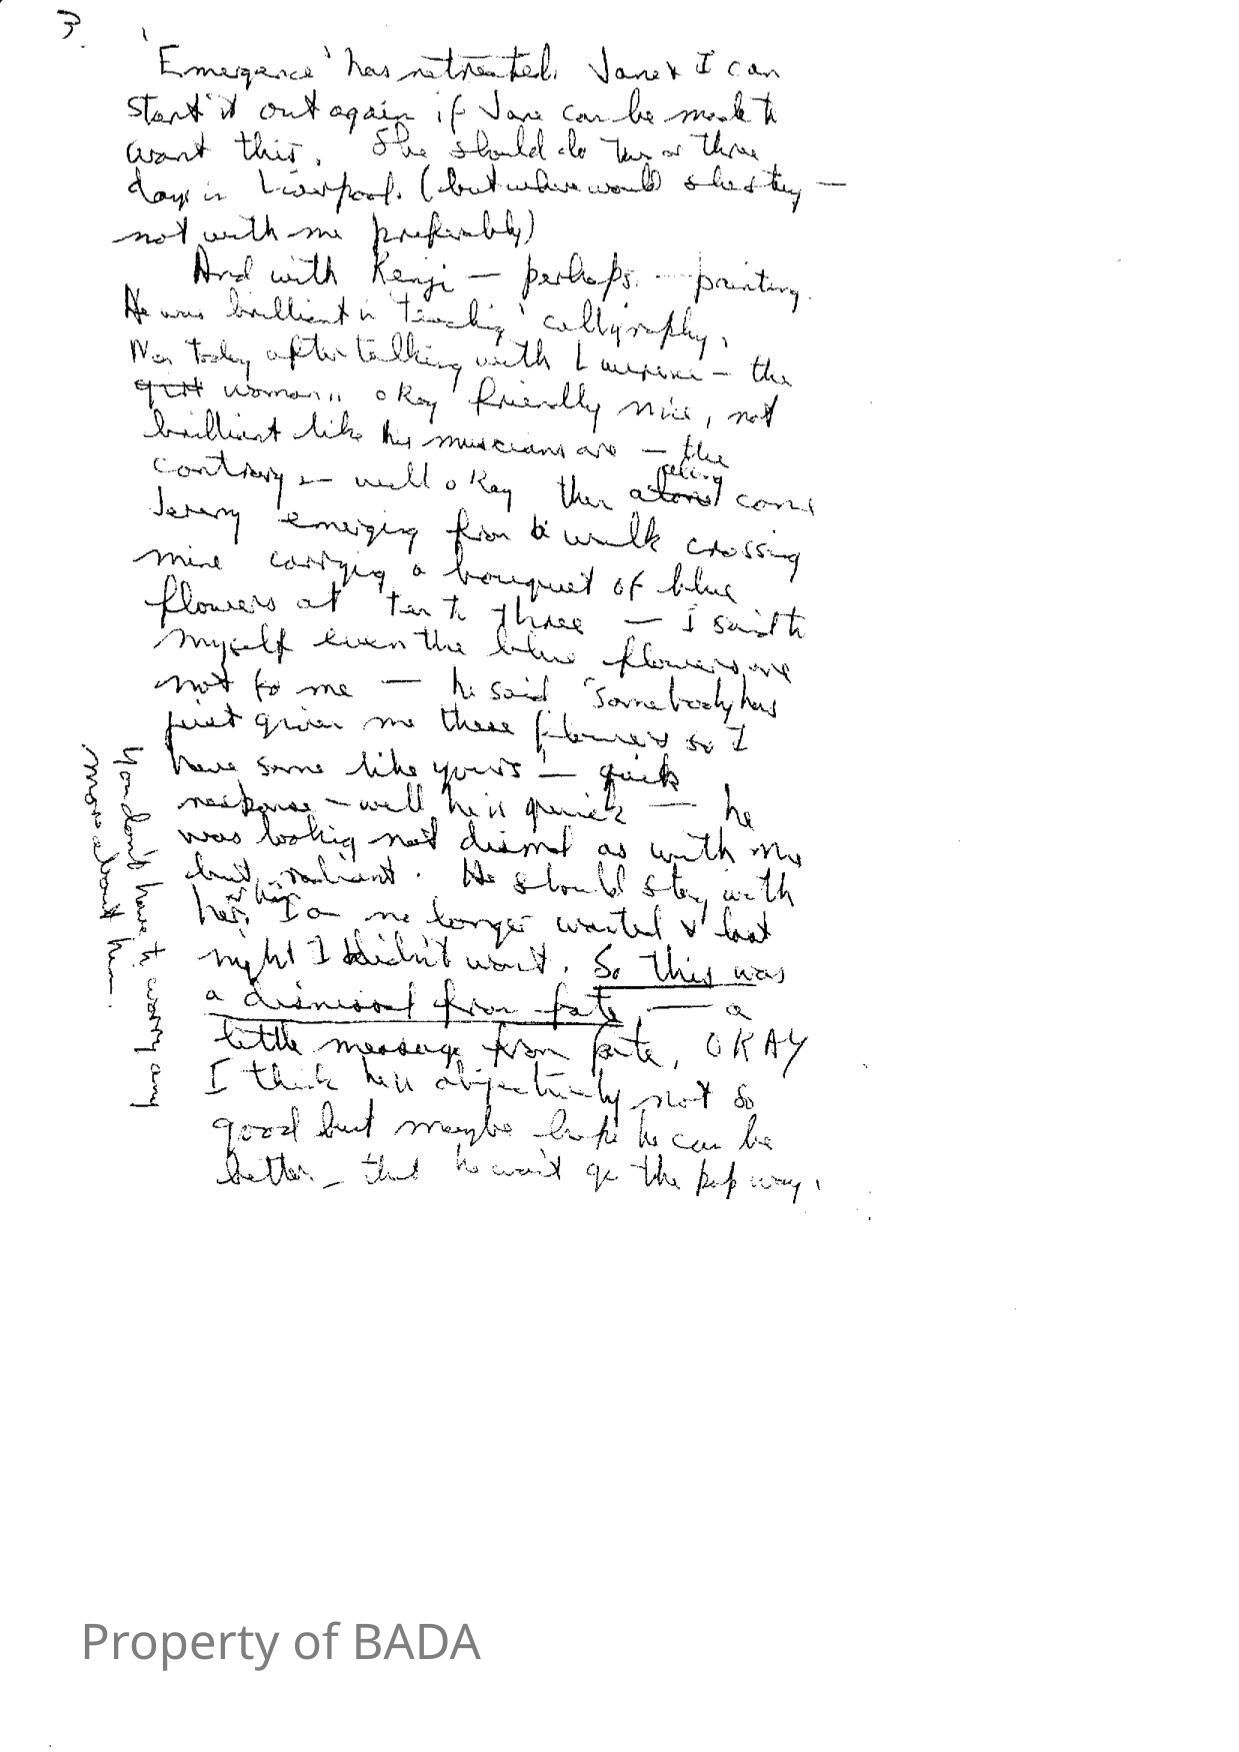 3.
'Emergence' has retreated. Jane & I can
start it out again if Jane can be made to
want this. She should do two or three
days in Liverpool. (but where would she stay —
not with me preferably)
And with Kenji — perhaps printing.
He was brilliant in teaching calligraphy.
Now today after talking with — the
girl woman okay friendly nice, not
brilliant like his musicians are — the
contrary — well okay then along comes
Jeremy emerging from a walk crossing
mine carrying a bouquet of blue
flowers at ten to three — I said to
myself even the blue flowers are
not to me — he said "Somebody has
just given me these flowers so I
have some like yours" — quick
response — well he is quick — he
was looking not dismal as with me
but radiant. He should stay with
her. I am no longer wanted & last
night I didn't want. So this was
a dismissal from fate, — a
little message from fate, OKAY
I think he is objectively not so
good but maybe hope he can be
better — that he won't go the pop way.
You don't have to worry any
more about him.
Property of BADA